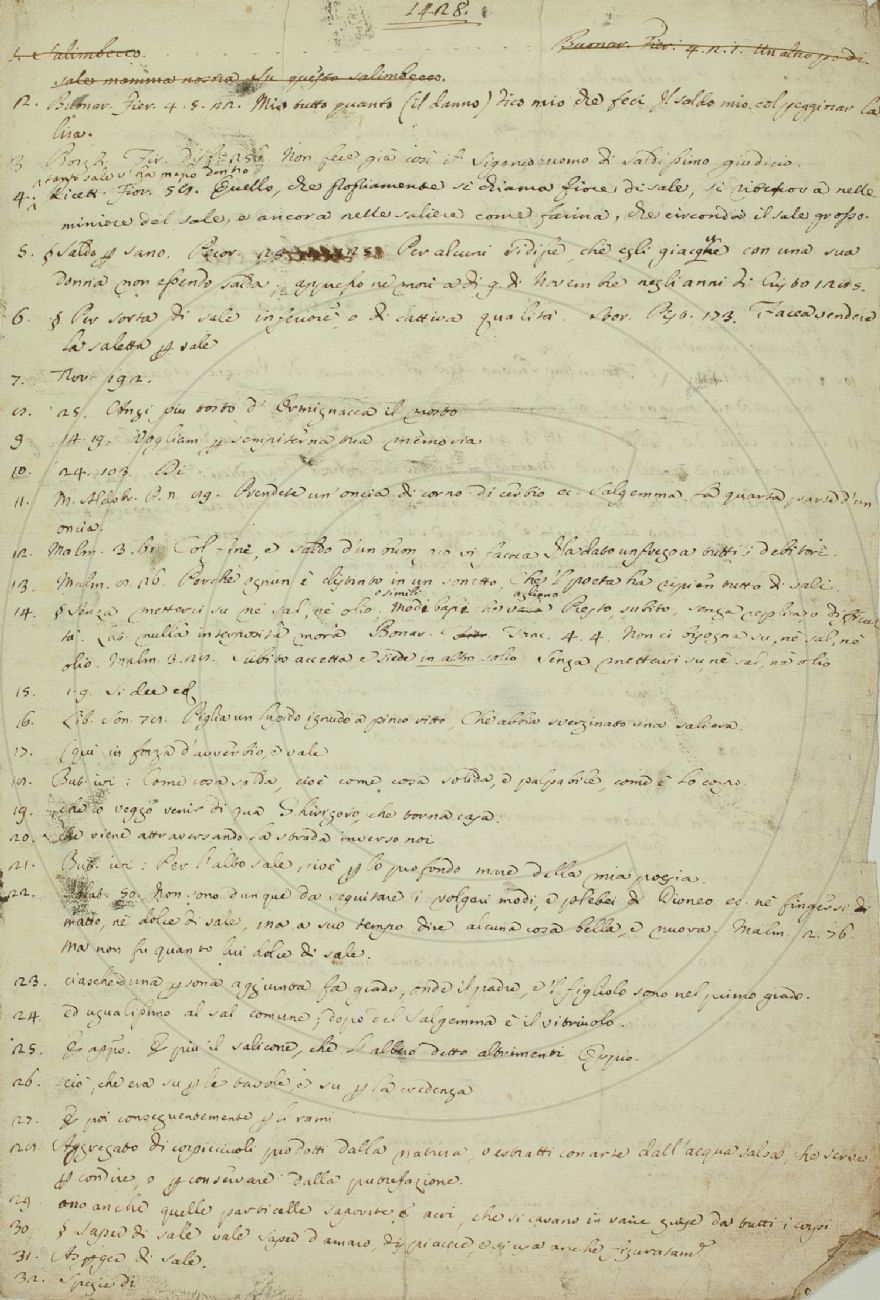 1428.
1. Salimbecco. Buonar. Fier. 4. 2. 7. Un altro po di
sale mamma nostra Su questo salimbecco.
12. Buonar. Fier. 4. 5. 22. Mio tutto quanto (il danno) dico mio che feci Il soldo mio col peggiorar la
lira.
3. Borgh. Fir. Non fece già così il Sigonio uomo di saldissimo giudicio.
tanto sale v'ha meno dentro
4. Ricett. Fior. 59. Quello, che si chiama fiore di sale, si ritrova nelle
miniere del sale, e ancora nelle saliere come farina, che circonda il sale grosso.
5. § Saldo p sano. Pecor. Per alcuni si disse, che egli giacque con una sua
donna non essendo salda, appresso ne morì a dì 9. di Novembre negli anni di Cristo
6. § Per sorta di sale inferiore, o di cattiva qualità. Stor. Pist. 173. Facea vendere
la saletta p sale
7. Nov. 192.
25. Anzi più tosto d'Ermignacca il
9. 14. 19. Vogliam p sempiterna tua memoria
10. 24. 103. Di
11. M. Aldobr. P. N. Prendete un'oncia di corno di cerbio ec. Salgemma la quarta parte d'un
oncia.
12. Malm. 3. 61. Col fine, e saldo d'un buon Ha dato un frego a tutti i debitori.
13. Malm. Perchè ognun è distinto in un sonetto, Che 'l poeta ha ripien tutto di sali.
e simili
14. § Senza metterci su nè sal, nè olio, Modi bassi che vagliono Presto, subito, senza replica o difficul
tà. Lat. nulla interposita mora Buonar. Tanc. 4. 4. Non ci bisogna su, nè sal, nè
olio. Malm. Subito accetta, e siede in alto solio Senza mettervi su, nè sal, nè olio
15. 1. 9. Si dee
16. Lib. Son. Piglia un ignudo a pinco ritto, Che abbia sverginato una saliera.
17. (qui in forza d'avverbio, e vale
But. ivi: Come cosa salda, cioè come cosa solida, e palpabile, come è lo corpo.
19. che io veggo venir di qua Ghirigoro, che torna casa.
20. che viene attraversando la strada inverso noi
21. But. ivi: Per l'alto sale, cioè p lo profondo mare della mia poesia.
22. 50. Non sono dunque da seguitare i volgari modi, e plebei di Dioneo ec. nè fingersi di
matto, nè dolce di sale, ma a suo tempo dire alcuna cosa bella, e nuova. Malm. 2. 76.
Ma non fu quanto lui dolce di sale.
23. ciascheduna psona aggiunta fa grado, onde il padre, e 'l figliolo sono nel primo grado.
24. ed ugualissimo al sal comune; dopo del Salgemma è il vitriuolo.
25. E appo. E più il salicone, che l'albuo detto altrimenti Oppio.
26. ciò, che era su p le tavole, e su p la credenza
27. E poi conseguentemente p li rami
Aggregato di corpicciuoli prodotti dalla natura, o estratti con arte dall'acqua salsa, che serve
p condire, o p conservare dalla putrefazione.
29. ono anche quelle particelle saporite, e acri, che si cavano in varie guise da tutti i corpi
30. § Saper di sale vale saper d'amaro, dispiacere, e si usa anche figuratam.
31. Asperger di sale.
32. Spezie di